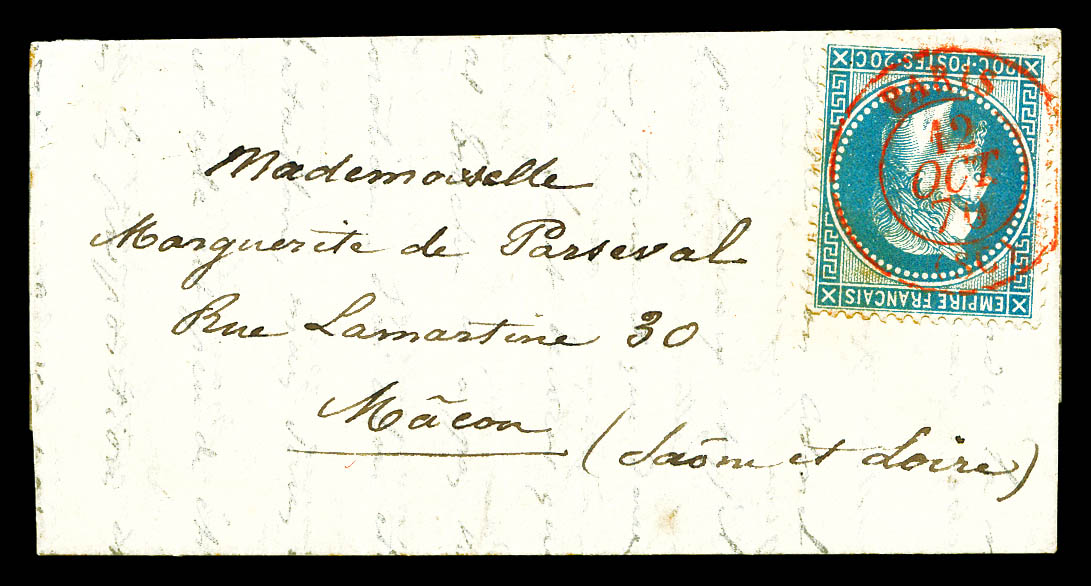 Mademoiselle
Marguerite de Parseval
Rue Lamartine 30
Mâcon (Saône et Loire)
20C·POSTES·20C
EMPIRE FRANÇAIS
PARIS
12
OCT
70
(SC)